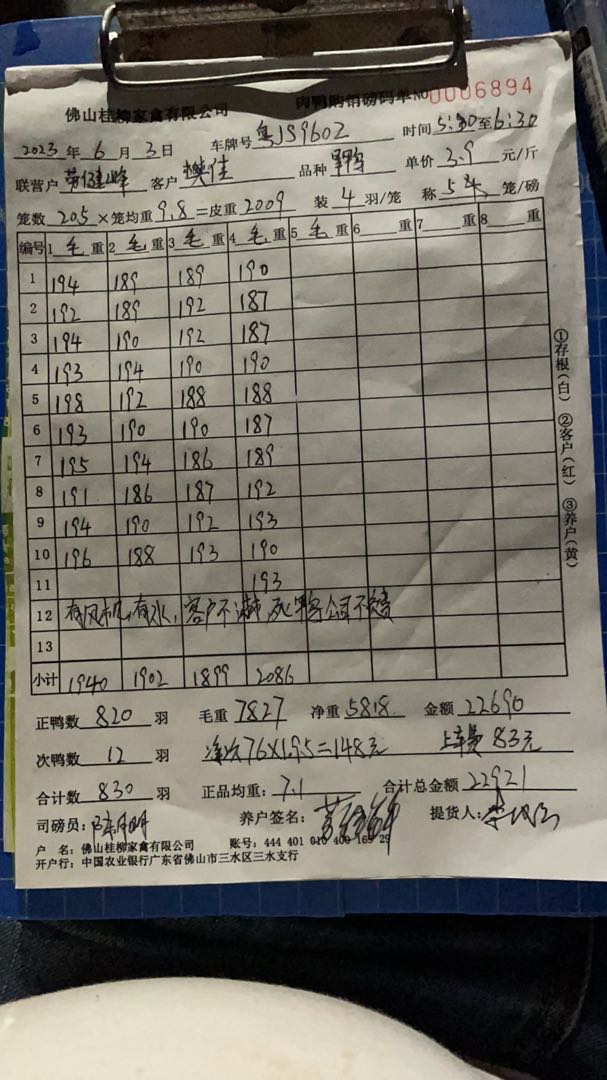 佛山桂柳家禽有限公司 肉鸭购销磅码单 NO 0006894
2023 年 6 月 3 日 车牌号 粤JS9602 时间 5:30 至 6:30
联营户 客户 樊佳 品种 单价 3.9 元/斤
笼数 205 × 笼均重 9.8 = 皮重 2009 装 4 羽/笼 称 笼/磅
编号 1 毛 重 2 毛 重 3 毛 重 4 毛 重 5 毛 重 6 重 7 重 8 重
1 194 189 189 190
2 192 189 192 187
3 194 190 192 187
4 193 194 190 190
5 198 192 188 188
6 193 190 190 187
7 195 194 186 189
8 191 186 187 192
9 194 190 192 193
10 196 188 193 190
11 193
12 有风机,有水,客户不淋,死鸭公司不赔
13
小计 1940 1902 1899 2086
正鸭数 820 羽 毛重 7827 净重 5818 金额 22690
次鸭数 12 羽 净次76×1.95=148元 上车费 83元
合计数 830 羽 正品均重: 7.1 合计总金额 22921
司磅员: 养户签名: 提货人:
户 名: 佛山桂柳家禽有限公司 账号: 444 401 010 400 169 29
开户行: 中国农业银行广东省佛山市三水区三水支行
①存根(白) ②客户(红) ③养户(黄)